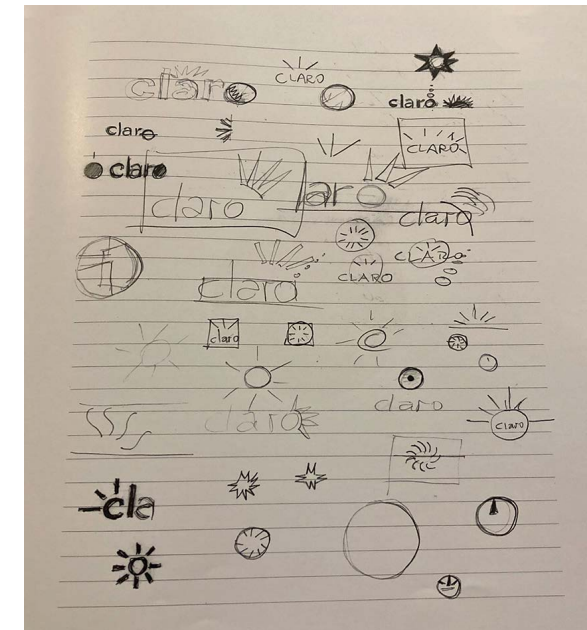 claro
CLARO
claro
claro
CLARO
claro
claro
aro
claro
CLARO
CLARO
claro
claro
claro
claro
claro
cla